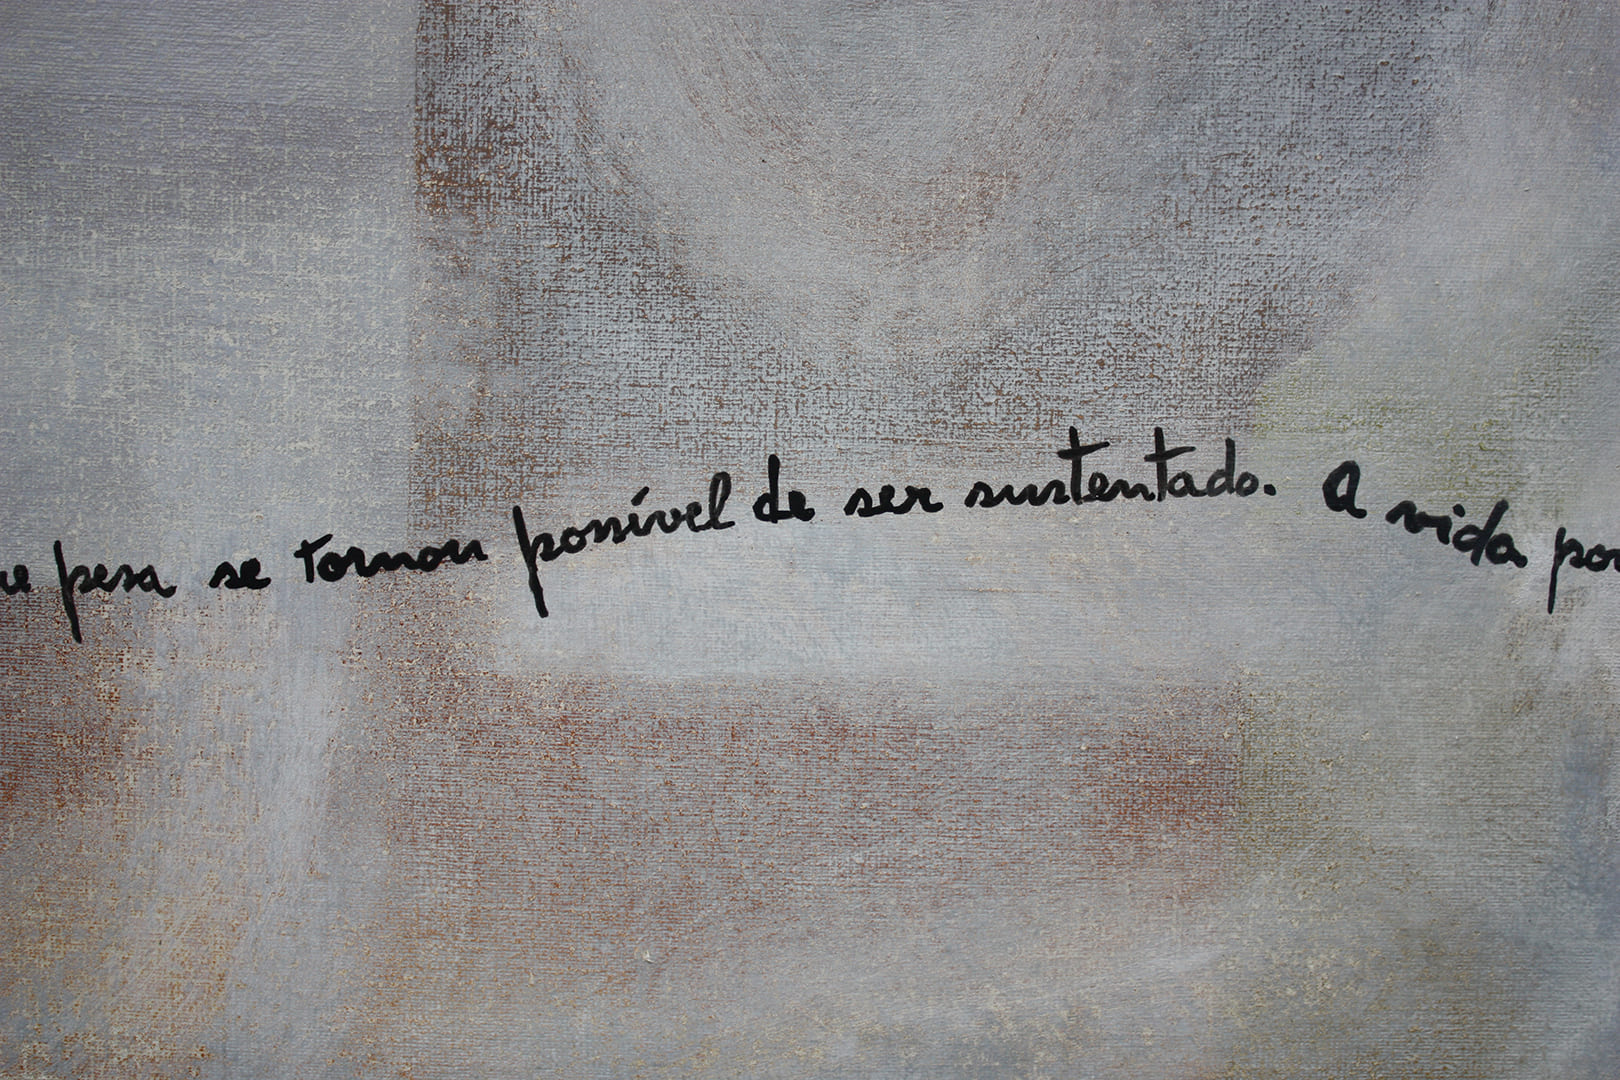 ue pesa se tornou possível de ser sustentado. A vida pou